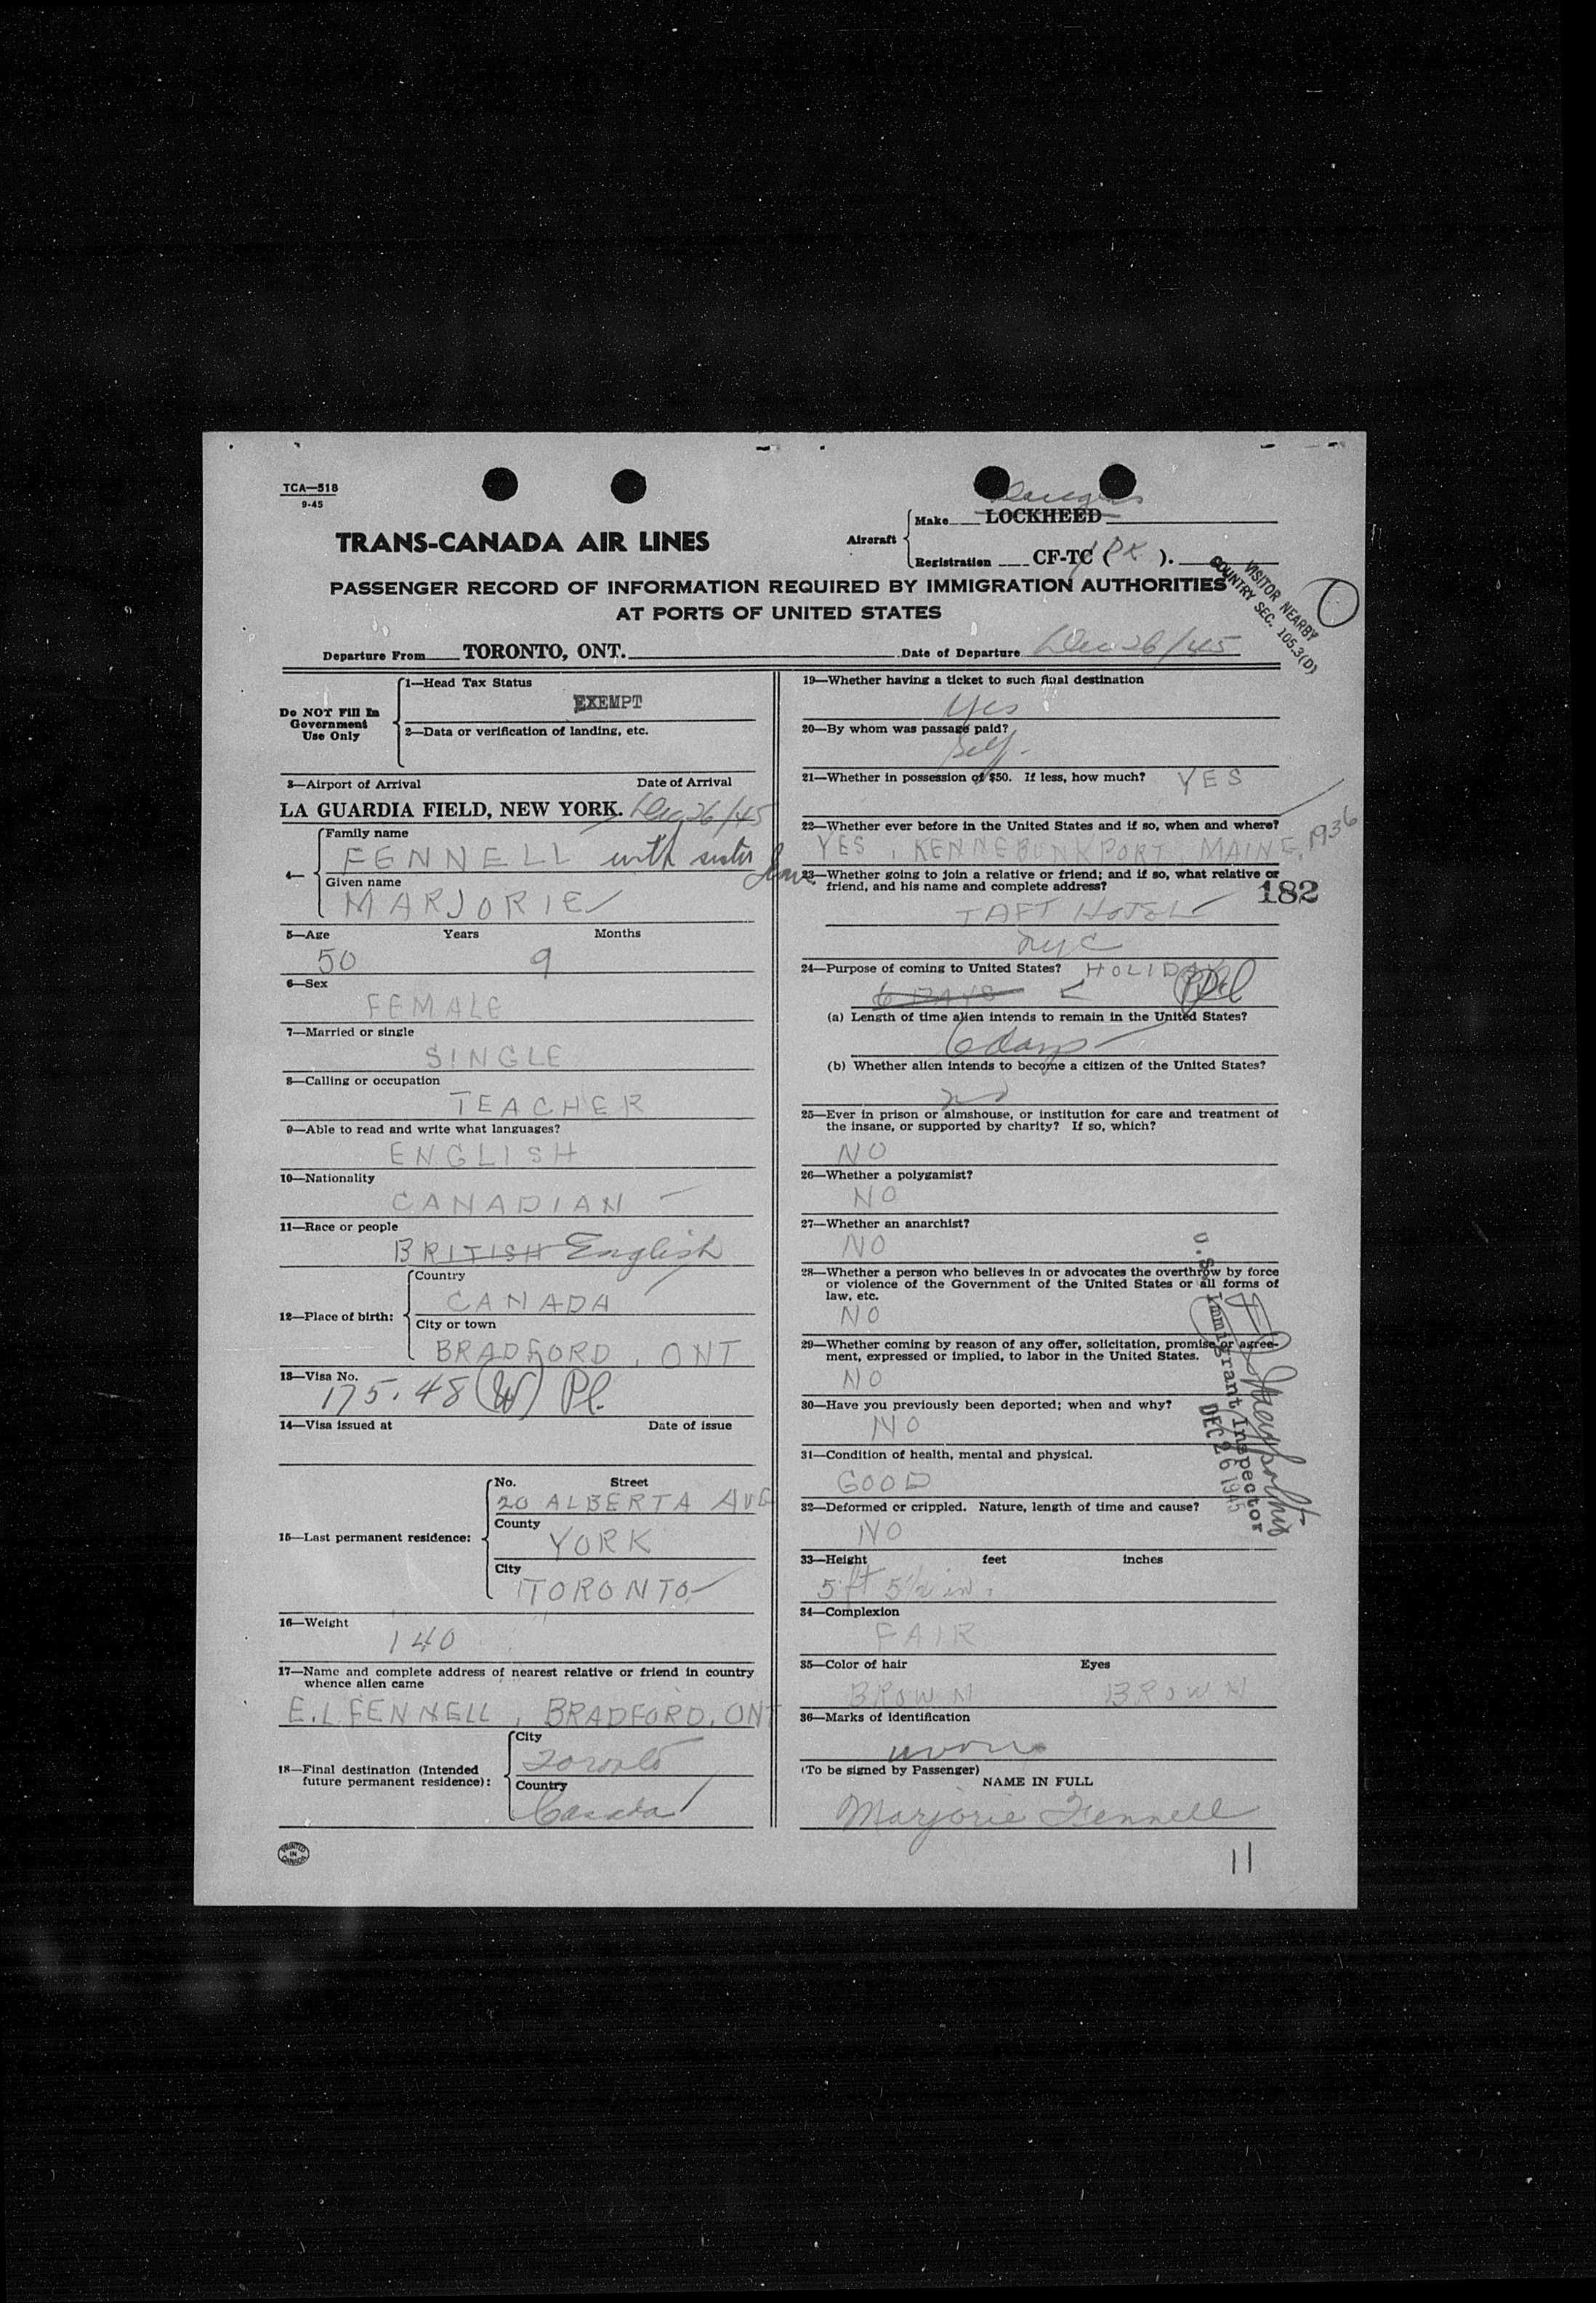 TCA—518
9-45
TRANS-CANADA AIR LINES
Aircraft
Make LOCKHEED
Registration CF-TC ( ).
PASSENGER RECORD OF INFORMATION REQUIRED BY IMMIGRATION AUTHORITIES
AT PORTS OF UNITED STATES
VISITOR NEARBY
COUNTRY SEC. 105.3(D)
Departure From TORONTO, ONT. Date of Departure Dec 26/45
Do NOT Fill In
Government
Use Only
1—Head Tax Status
EXEMPT
2—Data or verification of landing, etc.
3—Airport of Arrival Date of Arrival
LA GUARDIA FIELD, NEW YORK. Dec 26/45
4—
Family name
FENNELL with sister
Given name
MARJORIE
5—Age Years Months
50 9
6—Sex
FEMALE
7—Married or single
SINGLE
8—Calling or occupation
TEACHER
9—Able to read and write what languages?
ENGLISH
10—Nationality
CANADIAN
11—Race or people
BRITISH English
12—Place of birth:
Country
CANADA
City or town
BRADFORD, ONT
13—Visa No.
175.48 (W) Pl.
14—Visa issued at Date of issue
15—Last permanent residence:
No. Street
20 ALBERTA AVE
County
YORK
City
TORONTO
16—Weight
140
17—Name and complete address of nearest relative or friend in country
whence alien came
E.L. FENNELL, BRADFORD, ONT
18—Final destination (Intended
future permanent residence):
City
Toronto
Country
Canada
PRINTED
IN
CANADA
19—Whether having a ticket to such final destination
Yes
20—By whom was passage paid?
Self.
21—Whether in possession of $50. If less, how much? YES
22—Whether ever before in the United States and if so, when and where?
YES, KENNEBUNKPORT, MAINE, 1936
23—Whether going to join a relative or friend; and if so, what relative or
friend, and his name and complete address?
182
TAFT HOTEL
NYC
24—Purpose of coming to United States? HOLIDAY
6 DAYS
(a) Length of time alien intends to remain in the United States?
6 days
(b) Whether alien intends to become a citizen of the United States?
no
25—Ever in prison or almshouse, or institution for care and treatment of
the insane, or supported by charity? If so, which?
NO
26—Whether a polygamist?
NO
27—Whether an anarchist?
NO
28—Whether a person who believes in or advocates the overthrow by force
or violence of the Government of the United States or all forms of
law, etc.
NO
29—Whether coming by reason of any offer, solicitation, promise or agree-
ment, expressed or implied, to labor in the United States.
NO
30—Have you previously been deported; when and why?
NO
31—Condition of health, mental and physical.
GOOD
32—Deformed or crippled. Nature, length of time and cause?
NO
33—Height feet inches
5 ft 5½ in.
34—Complexion
FAIR
35—Color of hair Eyes
BROWN BROWN
36—Marks of identification
none
(To be signed by Passenger)
NAME IN FULL
Marjorie Fennell
11
U.S. Immigrant Inspector
DEC 26 1945